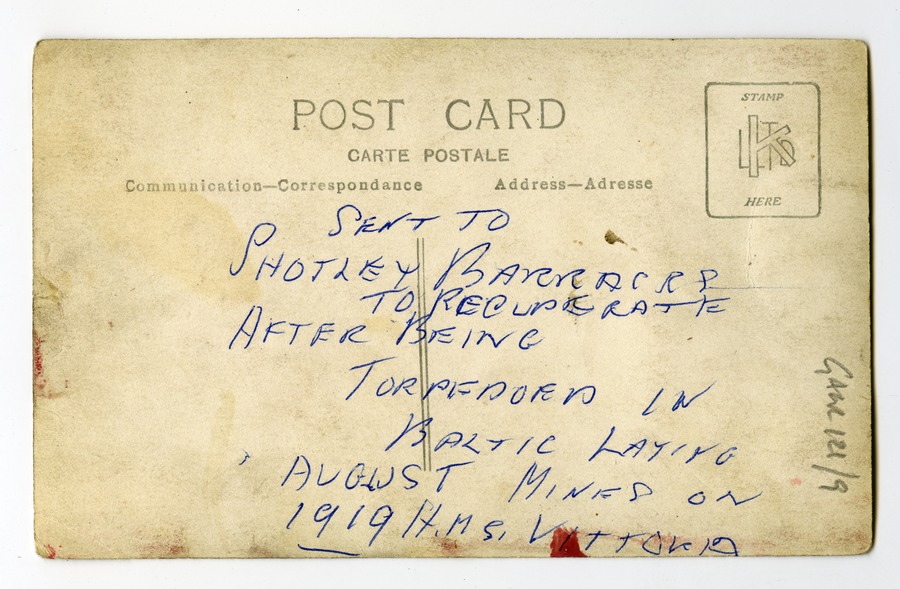 POST CARD
CARTE POSTALE
Communication—Correspondance
Address—Adresse
STAMP
HERE
SENT TO
SHOTLEY BARRACKS
TO RECUPERATE
AFTER BEING
TORPEDOED IN
BALTIC LAYING
AUGUST MINES ON
1919 H.M.S. VITTORIA
121/9